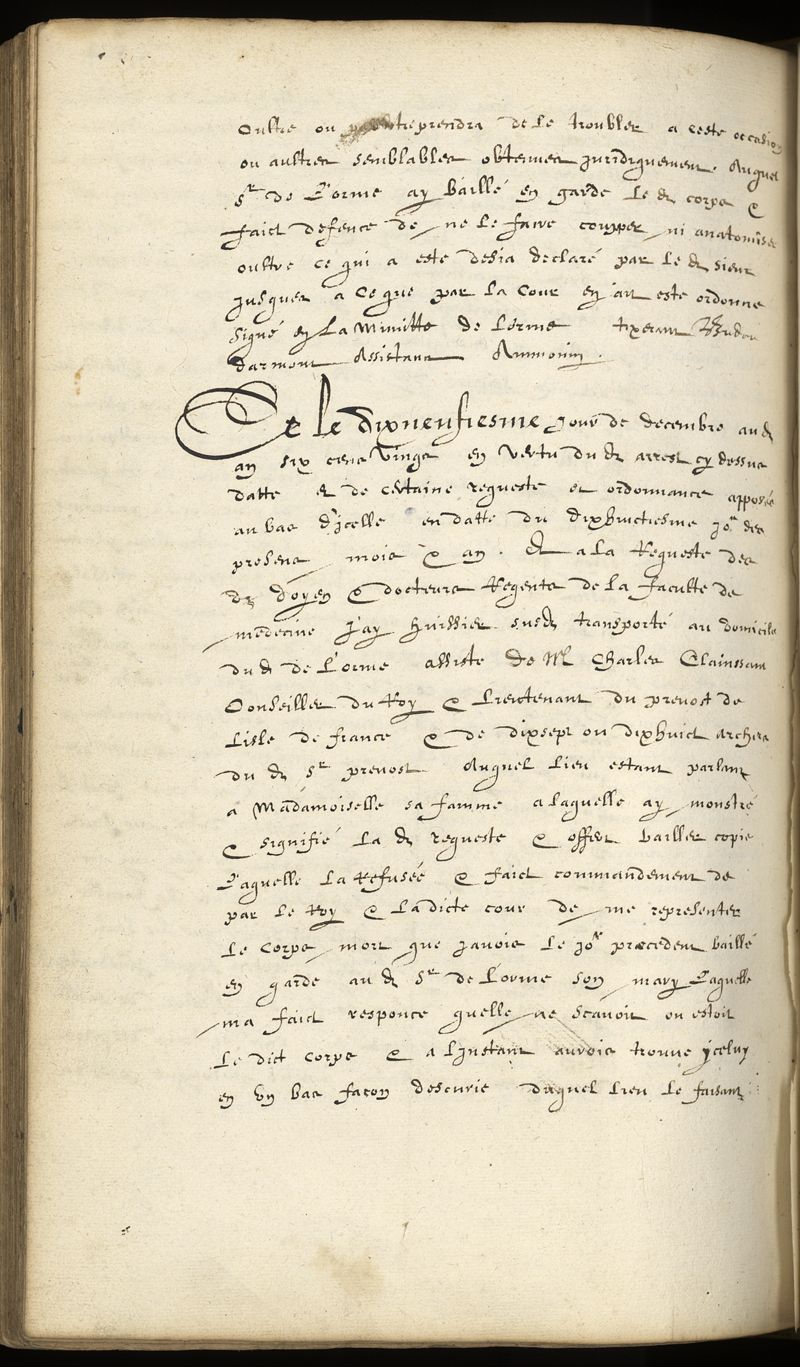 Oultre ou entreprendra de le troubler a ceste occasion
ou aultres semblables obtenues juridiquement. Auquel
Sr de Lorme ay baillé en garde le d. corps &
faict defence de ne le faire coupper ni anatomiser
oultre ce qui a este desia declaré par le d. sieur
jusques a ce que par la Cour en ait este ordonne
Signé en la Minutte de Lorme tixerant
darmont Assistans
Et le dixneufiesme jour de decembre aud.
an six cens vingt en vertu du d. arrest cy dessus
datte et de certaine requeste et ordonnance apposée
au bas d'icelle en datte du dixhuictiesme jor des
presens mois & an. Et a la Requeste des
ds doyen & docteurs Regents de la faculte de
medecine J'ay huissier susd. transporté au domicile
du d. de Lorme assiste de Me Charles
Conseiller du Roy & Lieutenant du prevost de
Lisle de france & de dixsept ou dixhuict archers
du d. Sr prevost. Auquel lieu estant parlant
a Madamoiselle sa famme a laquelle ay monstré
& signifié la d. requeste & offert bailler copie
Laquelle la Refusée & faict commandement de
par le Roy & la dicte cour de me representer
le Corps mort que javois le jor præcedent baillé
en garde au d. Sr de Lorme son mary Laquelle
ma faict responce quelle ne scavoit ou estoit
le dict Corps & a l'instant aurois trouve yceluy
en vn bas facon descurie duquel lieu le faisant